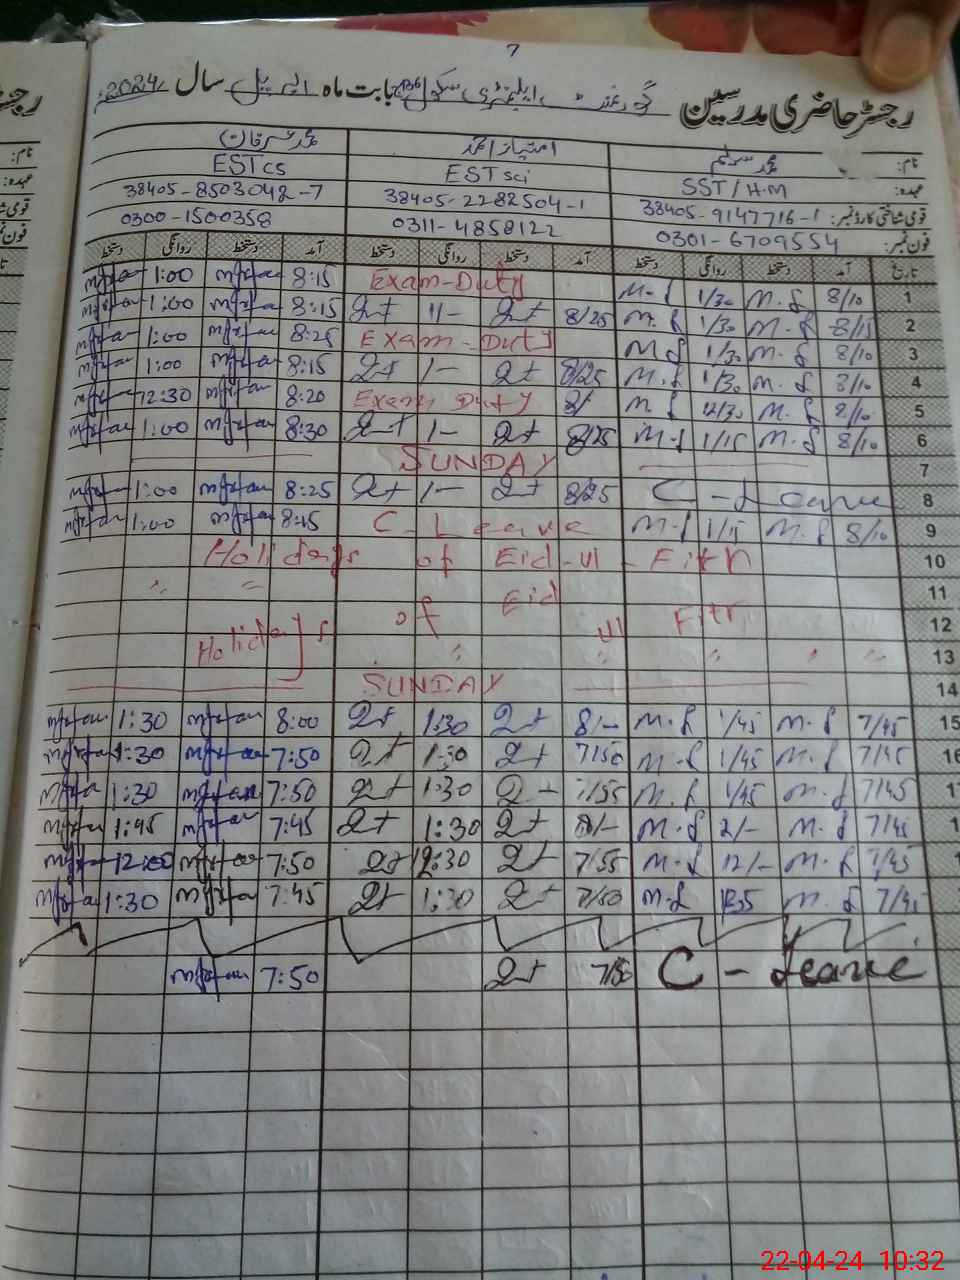 7
رجسٹر حاضری مدرسین گورنمنٹ ایلیمنٹری سکول بابت ماہ اپریل سال 2024
نام: محمد سلیم امتیاز احمد محمد عرفان
عہدہ: SST/H.M ESTsci ESTcs
قومی شناختی کارڈ نمبر: 38405-9147716-1 38405-2282504-1 38405-8503042-7
فون نمبر: 0301-6709554 0311-4858122 0300-1500358
تاریخ آمد دستخط روانگی دستخط آمد دستخط روانگی دستخط آمد دستخط روانگی دستخط
1 8/10 M.S 1/30 M.S Exam-Duty 8:15 mirfan 1:00 mirfan
2 8/15 M.S 1/30 M.S 8/25 1- 8:15 mirfan 1:00 mirfan
3 8/10 M.S 1/30 M.S Exam-Duty 8:25 mirfan 1:00 mirfan
4 8/10 M.S 1/30 M.S 8/25 1- 8:15 mirfan 1:00 mirfan
5 8/10 M.S 12/30 M.S Exam Duty 8:20 mirfan 12:30 mirfan
6 8/10 M.S 1/15 M.S 8/25 1- 8:30 mirfan 1:00 mirfan
7 SUNDAY
8 C-Leave 8/25 1- 8:25 mirfan 1:00 mirfan
9 8/10 M.S 1/15 M.S C-Leave 8:15 mirfan 1:00 mirfan
10 Holidays of Eid-ul-Fitr
11 〃 = Eid
12 Holidays of ul Fitr
13 〃 〃 〃 〃 〃
14 SUNDAY
15 7/45 M.S 1/45 M.S 8/- 1:30 8:00 mirfan 1:30 mirfan
16 7/45 M.S 1/45 M.S 7/50 1:30 7:50 mirfan 1:30 mirfan
1 7/45 M.S 1/45 M.S 7/55 1:30 7:50 mirfan 1:30 mirfan
1 7/45 M.S 2/- M.S 8/- 1:30 7:45 mirfan 1:45 mirfan
1 7/45 M.S 12/- M.S 7/55 12:30 7:50 mirfan 12:00 mirfan
7/45 M.S M.S 7/50 1:30 7:45 mirfan 1:30 mirfan
C-Leave 7/50 7:50 mirfan
22-04-24 10:32